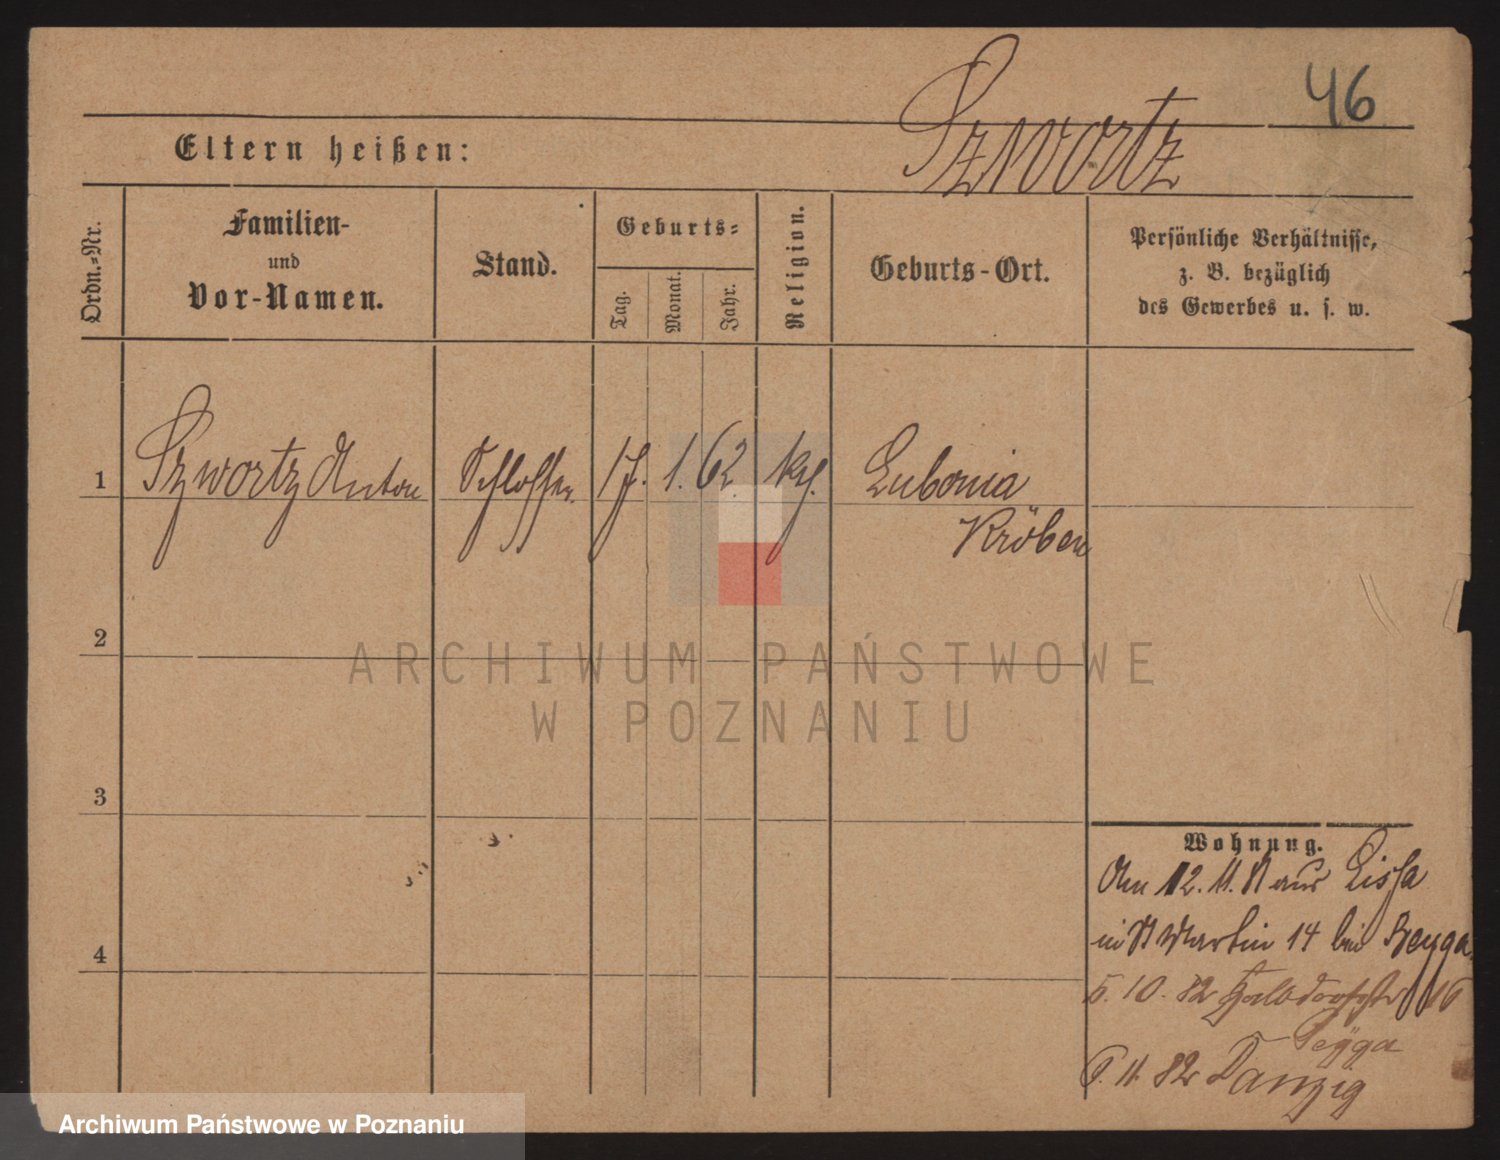 46
Szwortz
Eltern heißen:
Ordn.-Nr.
Familien-
und
Vor-Namen.
Stand.
Geburts-
Tag.
Monat.
Jahr.
Religion.
Geburts-Ort.
Persönliche Verhältnisse,
z. B. bezüglich
des Gewerbes u. s. w.
1 Szwortz Anton Schlosser 17. 1. 62. kth. Lubonia
Kröben
2
ARCHIWUM PAŃSTWOWE
W POZNANIU
3
4
Wohnung.
Am 12. 11. 81 aus Lissa
in St Martin 14 bei
5. 10. 82 Halbdorfstr 16
6. 11. 82 Danzig
Archiwum Państwowe w Poznaniu